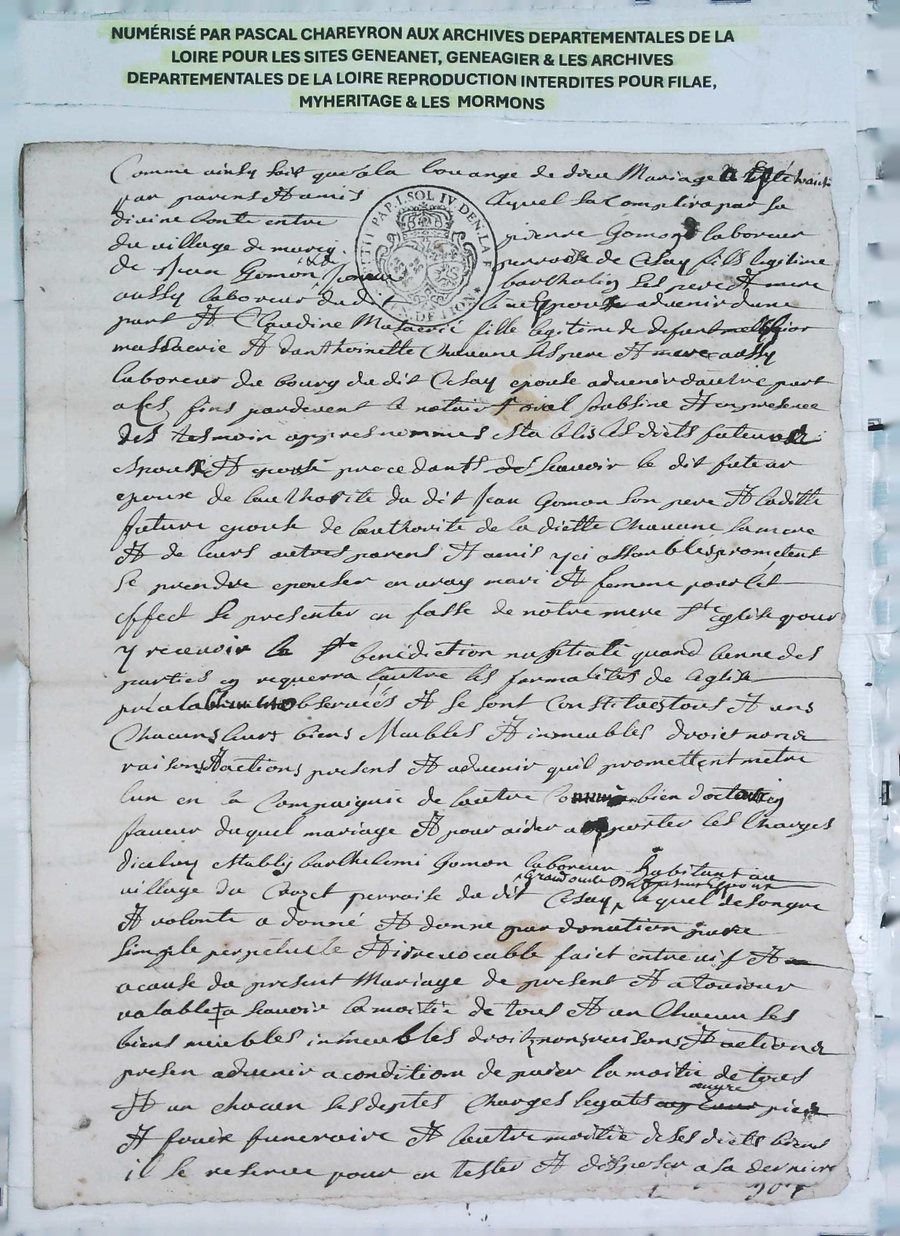 NUMÉRISÉ PAR PASCAL CHAREYRON AUX ARCHIVES DEPARTEMENTALES DE LA
LOIRE POUR LES SITES GENEANET, GENEAGIER & LES ARCHIVES
DEPARTEMENTALES DE LA LOIRE REPRODUCTION INTERDITES POUR FILAE,
MYHERITAGE & LES MORMONS
Comme ainsy soit que a la louange de dieu Mariage
par parens Et amis lequel sa complira par sa
divine bonte entre pierre Gomon laboreur
du village de perroisse de Cesay fils legitime
de Jean Gomon Et ses pere Et mere
aussy laboreur du dit lieu Epoux advenir dune
part Et Claudine Massacrié fille legitime de defunt
massacrie Et danthoinette Chauane ses pere Et mere aussy
laboreur du bourg du dit Cesay epouse advenir dautre part
a Ces fins pardevent le notaire Royal soubsine Et en presence
des tesmoin appres nommes Establis les diets futeur
Espoux Et epouse procedants sçauoir le dit futeur
epoux de lauthorite du dit Jean Gomon son pere Et laditte
future epouse de lauthorite de la diette Chauane sa mere
Et de leurs autres parens Et amis yci assembles prometent
se prendre epouser en vray mari Et femme pour Cet
effect se presenter en fasse de notre mere Ste eglise pour
y recevoir la Ste benediction nuptiale quand lunne des
parties en requerra lautre les formalites de leglise
observées Et se sont Constitues tous Et uns
Chacuns leurs biens Meubles Et inmeubles droict noms
raisons Et actions presens Et advenir quil promettent metre
lun en la Compaignie de lautre
faveur duquel mariage Et pour aider a porter les Charges
diceluy Establis barthelemi Gomon laboreur habitant au
village du Crozet perroise du dit Cesay lequel de son gre
Et volonte a donné Et donne par donation pure
simple perpetuelle Et irrevocable faict entre vif Et
a cause du present Mariage de present Et a toujour
valable a scavoir la moitie de tous Et un Chacun ses
biens meubles inmeubles droit noms raisons Et actions
presen advenir a condition de paier la moitie de tous
Et un chacun ses deptes Charges legats
Et fraix funeraire Et lautre moitie de ses diets biens
il se reserve pour en tester Et disposer a sa derniere